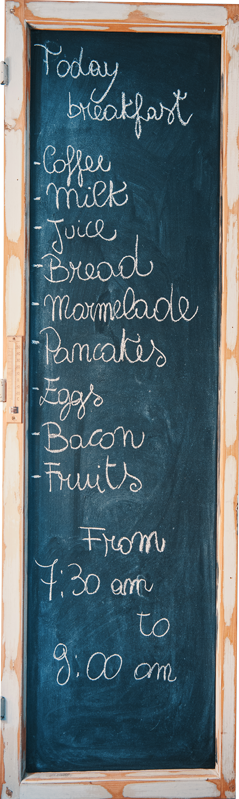 Today
breakfast
-Coffee
-Milk
-Juice
-Bread
-Marmelade
-Pancakes
-Eggs
-Bacon
-Fruits
From
7:30 am
to
9:00 am